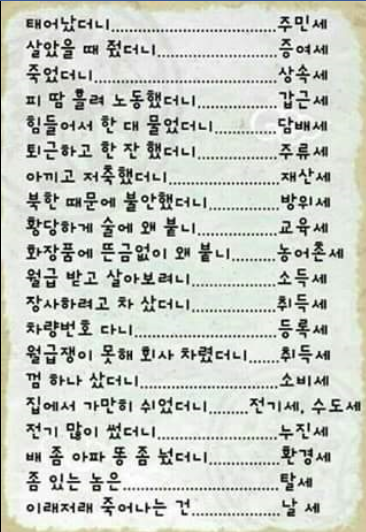 태어났더니..............................주민세
살았을 때 줬더니......................증여세
죽었더니.................................상속세
피 땀 흘려 노동했더니..............갑근세
힘들어서 한 대 물었더니...........담배세
퇴근하고 한 잔 했더니..............주류세
아끼고 저축했더니....................재산세
북한 때문에 불안했더니............방위세
황당하게 술에 왜 붙니..............교육세
화장품에 뜬금없이 왜 붙니.......농어촌세
월급 받고 살아보려니...............소득세
장사하려고 차 샀더니...............취득세
차량번호 다니..........................등록세
월급쟁이 못해 회사 차렸더니......취득세
껌 하나 샀더니.........................소비세
집에서 가만히 쉬었더니.......전기세, 수도세
전기 많이 썼더니......................누진세
배 좀 아파 똥 좀 눴더니............환경세
좀 있는 놈은............................탈세
이래저래 죽어나는 건...............날 세